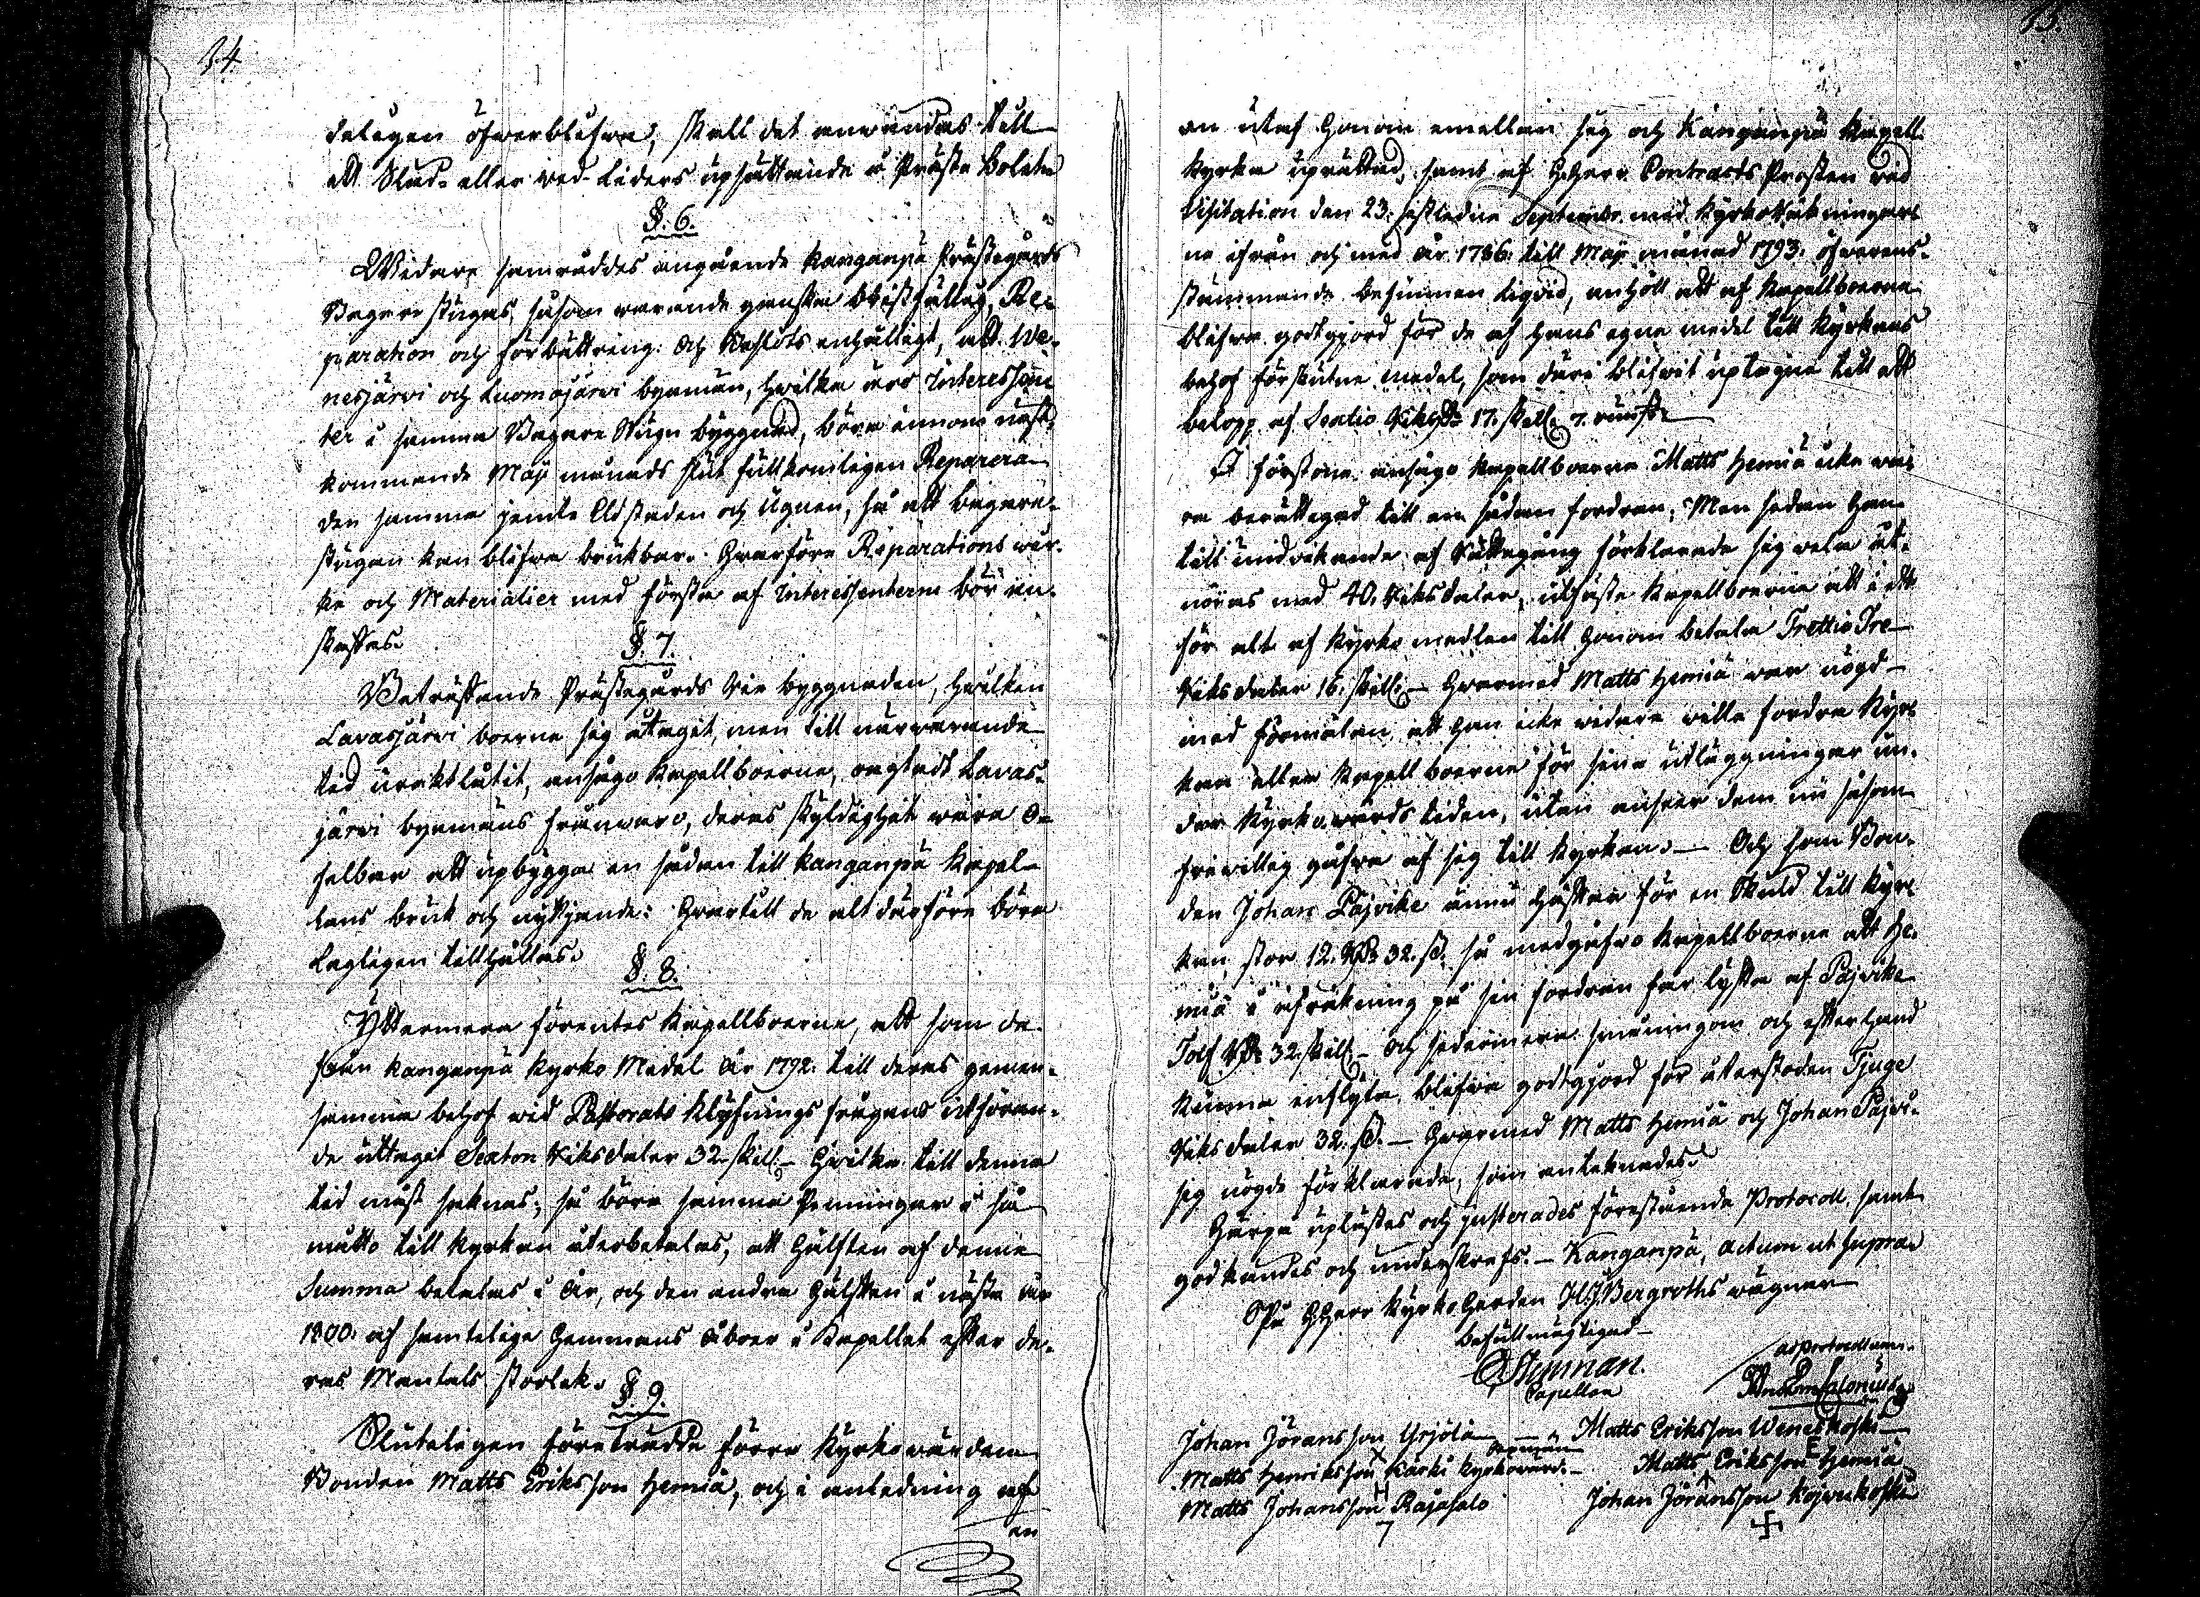 14.
deligen öfwerblifwa, skall det anwändas till
ett Stad- eller wed-liders upsättande å Präste Bolet
§. 6.
Widare samråddes angående Kanganpä Prästegårds
Bagare stugas, såsom warande ganska bristfällig, Re-
paration och förbättring: Och beslöts enhälligt, att We-
nesjärvi och Luomajärvi byamän, hwilka äro Interessen-
ter i samma Bagare stugu byggnad, böra innom näst-
kommande Maji månads slut fullkomligen Reparera
den samma jemte Eldstaden och Ugnen, så att bagare-
stugan kan blifwa brukbar. Hwarföre Reparations wir-
ke och Materialier med första af Interessenterne bör an-
skaffas.
§. 7.
Beträffande Prästegårds Rie byggnaden, hwilken
Lavasjärvi boerne sig åtagit, men till närwarande
tid uraktlåtit, ansågo Kapellboerne, oagtadt Lavas-
järvi byamäns frånwaro, deras skyldighet wara o-
felbar att upbygga en sådan till Kanganpä Kapel-
lans bruk och nyttjande: Hwartill de alt därföre böra
lagligen tillhållas.
§. 8.
Yttermera förentes Kapellboerne, att som de
från Kanganpä Kyrko Medel År 1792. till deras gemen-
samma behof wid Pastorats klyfnings frågans utföran-
de uttagit Sexton Riksdaler 32. skill. Hwilka till denna
tid måst saknas; så böra samma Penningar i så
måtto till Kyrkan återbetalas, att Hälften af denna
Summa betalas i År, och den andra Hälften i nästa År
1800. af samtelige Hemmans Åboer i Kapellet efter de-
ras Mantals storlek.
§. 9.
Sluteligen företrädde förra Kyrkowärden
Bonden Matts Eriksson Hemiä, och i anledning af
en
15.
en utaf Honom emellan sig och Kanganpä Kapell
Kyrka uprättad, samt af HHerr Contracts Prosten wid
Visitation den 23. sistledne Septembr. med Kyrkoräkningar-
ne ifrån och med År 1786. till Maji månad 1793. öfwerens-
stämmande befunnen Liqvid, anhöll att af Kapellboerne
blifwa godtgjord för de af Hans egna medel till Kyrkans
behof förskutne medel, som däri blifwit uptagne till ett
belopp af Riksd. 17. skill. 7. runst.
I förstone ansågo Kapellboerne Matts Hemiä icke wa-
ra berättigad till en sådan fordran; Men sedan Han
till undwikande af Rättegång förklarade sig wela åt-
nöjas med 40. Riksdaler, utfäste Kapellboerne att i ett
för alt af Kyrko medlen till Honom betala Trettio Tre
Riksdaler 16. skill. Hwarmed Matts Hemiä war nögd
med förmälan att Han icke widare wille fordra Kyr-
kan eller Kapellboerne för sina utläggningar un-
der Kyrkowärds tiden, utan anser dem nu såsom
friwillig gåfwa af sig till Kyrkan. Och som Bon-
den Johan Pajvike ännu häftar för en Skuld till Kyr-
kan, stor 12. Rd. 32. sk. så medgåfwo Kapellboerne att He-
miä i afräkning på sin fordran får lyfta af Pajvike
Tolf Rd. 32. skill. Och sedermera småningom och efterhand
kunna inflyta, blifwa godtgjord för återstoden Tjuge
Riksdaler 32. sk. Hwarmed Matts Hemiä och Johan Pajvi-
sig nögde förklarade, som anteknades.
Härpå uplästes och justerades förestående Protocoll, samt
godkändes och underskrefs. Kanganpä, actum ut supra.
På HHerr Kyrko Herden H.J. Bergroths wägnar
befullmägtigad
Capellan
ad protocollum
Johan Jöransson Yrjölä — Matts Eriksson Weneskoski
Matts Henriksson Karki Kyrkowärd. Matts Eriksson Hemiä
Matts Johansson Rajasalo Johan Jöransson Kojwukoski